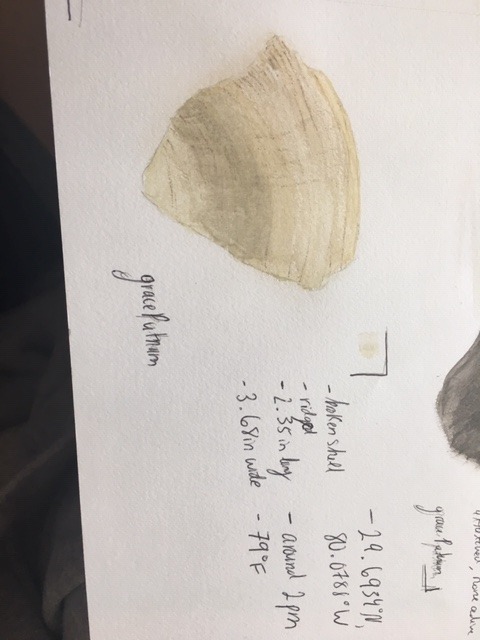 grace Putnam
- broken shell
- ridged
- 2.35 in long
- 3.68 in wide
- 29.6934°N,
80.0788°W
- around 2 pm
- 79°F
grace Putnam